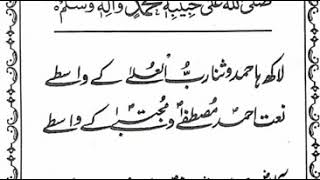 صلی اللہ علی حبیبہ محمد وآلہ وسلم
لاکھ ہا حمد و ثنا ربُّ العُلٰے کے واسطے
نعت احمدؐ مصطفٰےؐ و مجتبٰےؐ کے واسطے